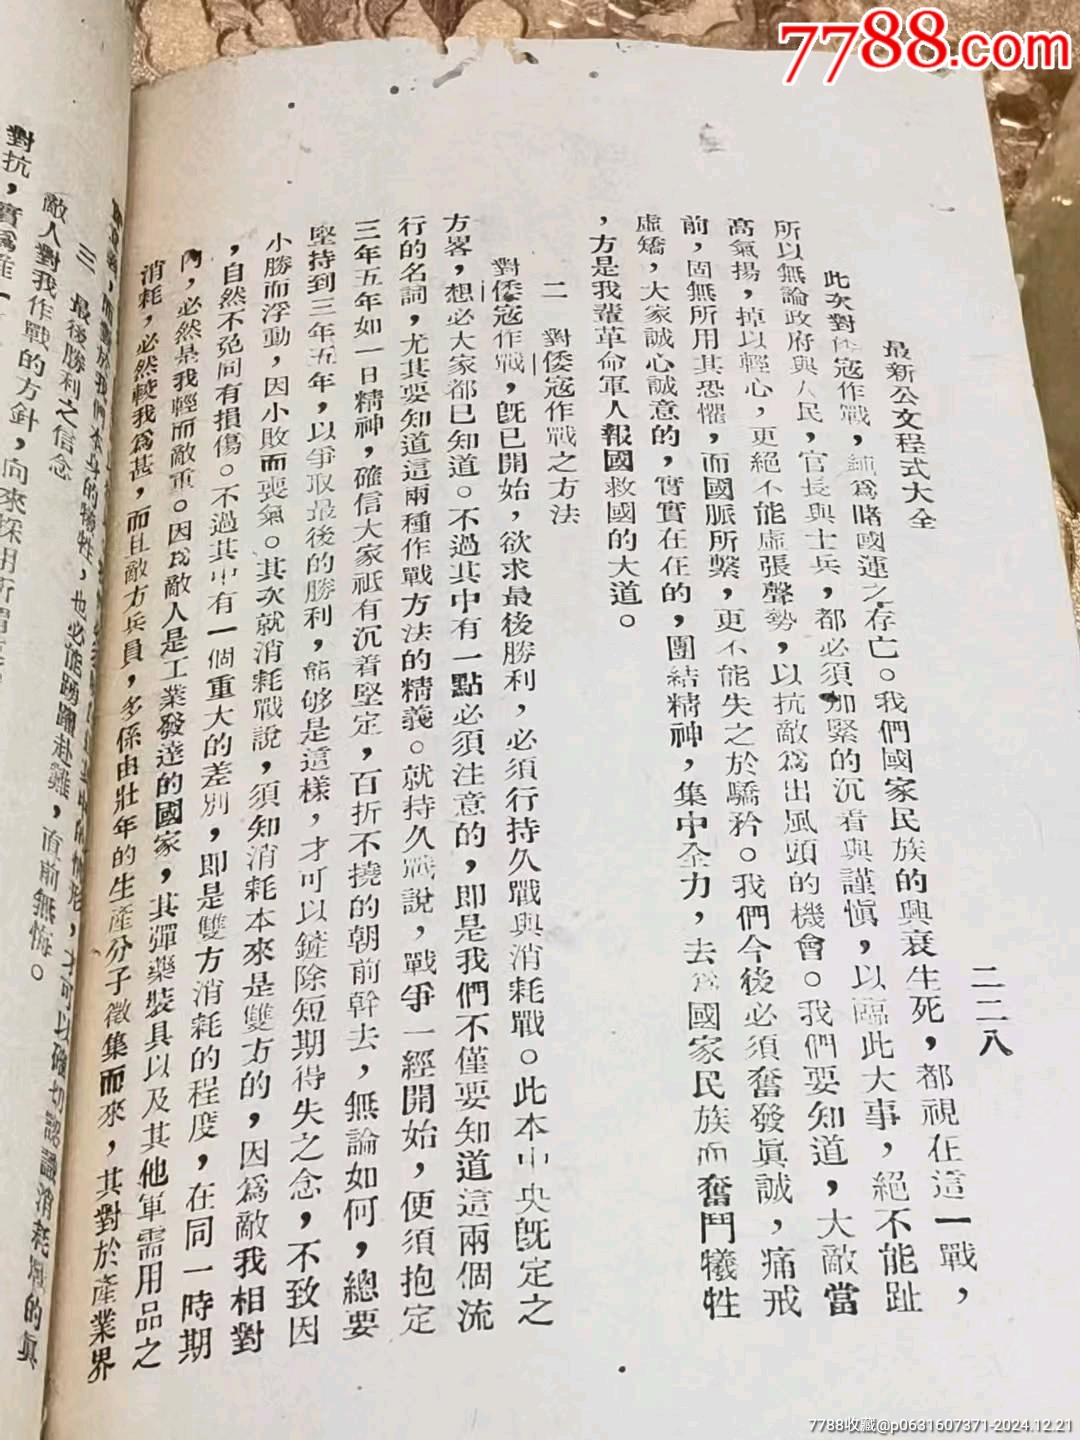 7788.com
最新公文程式大全
二二八
此次對倭寇作戰，純爲賭國運之存亡。我們國家民族的興衰生死，都視在這一戰，
所以無論政府與人民，官長與士兵，都必須加緊的沉着與謹愼，以臨此大事，絕不能趾
高氣揚，掉以輕心，更絕不能虛張聲勢，以抗敵爲出風頭的機會。我們要知道，大敵當
前，固無所用其恐懼，而國脈所繫，更不能失之於驕矜。我們今後必須奮發眞誠，痛戒
虛矯，大家誠心誠意的，實實在在的，團結精神，集中全力，去爲國家民族而奮鬥犧牲
，方是我輩革命軍人報國救國的大道。
二　對倭寇作戰之方法
對倭寇作戰，旣已開始，欲求最後勝利，必須行持久戰與消耗戰。此本中央旣定之
方畧，想必大家都已知道。不過其中有一點必須注意的，即是我們不僅要知道這兩個流
行的名詞，尤其要知道這兩種作戰方法的精義。就持久戰說，戰爭一經開始，便須抱定
三年五年如一日精神，確信大家祗有沉着堅定，百折不撓的朝前幹去，無論如何，總要
堅持到三年五年，以爭取最後的勝利，能够是這樣，才可以鏟除短期得失之念，不致因
小勝而浮動，因小敗而喪氣。其次就消耗戰說，須知消耗本來是雙方的，因爲敵我相對
，自然不免同有損傷。不過其中有一個重大的差別，即是雙方消耗的程度，在同一時期
內，必然是我輕而敵重。因爲敵人是工業發達的國家，其彈藥裝具以及其他軍需用品之
消耗，必然較我爲甚，而且敵方兵員，多係由壯年的生產分子徵集而來，其對於產業界
才可以確切認識消耗戰的眞
而對於我們本身的犧牲，也必能踴躍赴難，直前無悔。
三　最後勝利之信念
敵人對我作戰的方針，向來採用所謂
對抗，實爲難
7788收藏@p0631607371-2024.12.21